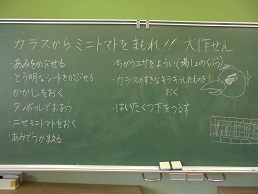 カラスからミニトマトをまもれ!! 大作せん
・あみをかぶせる
とう明なシートをかぶせる
・かかしをおく
・ダンボールでおおう
・ニセミニトマトをおく
・あみでつかまえる
・ちがうエサをよういする
・カラスのすきなキラキラしたものをおく
・はいたくつ下をつるす